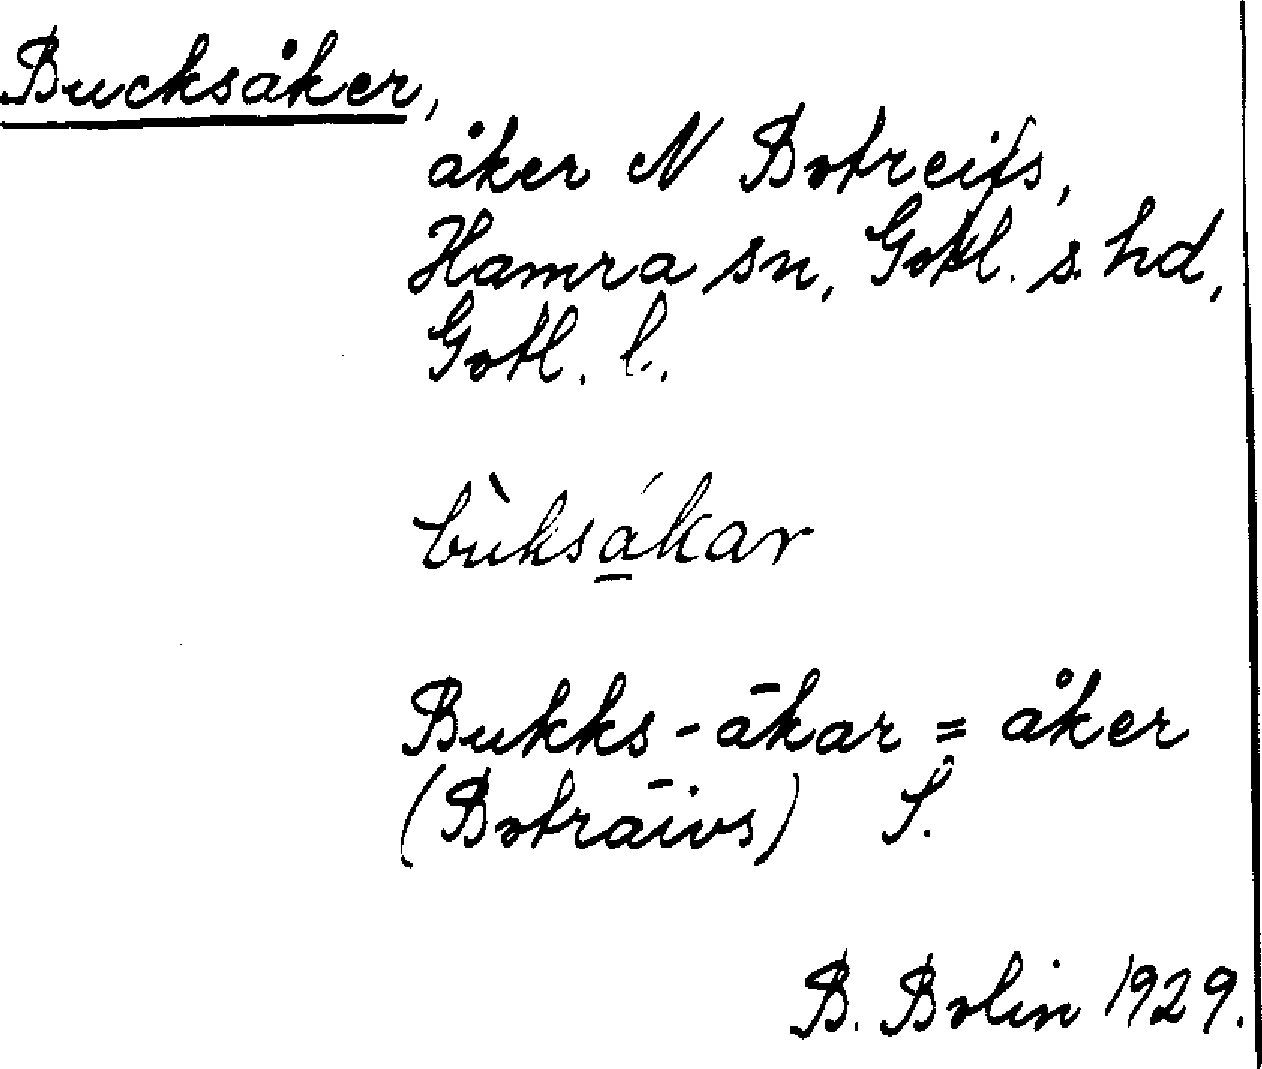 Bucksåker,
åker N Botreifs,
Hamra sn, Gotl. s. hd,
Gotl. l.
bùksá̲kar
Bukks-ākar = åker
(Botrāivs) S.
B. Bolin 1929.